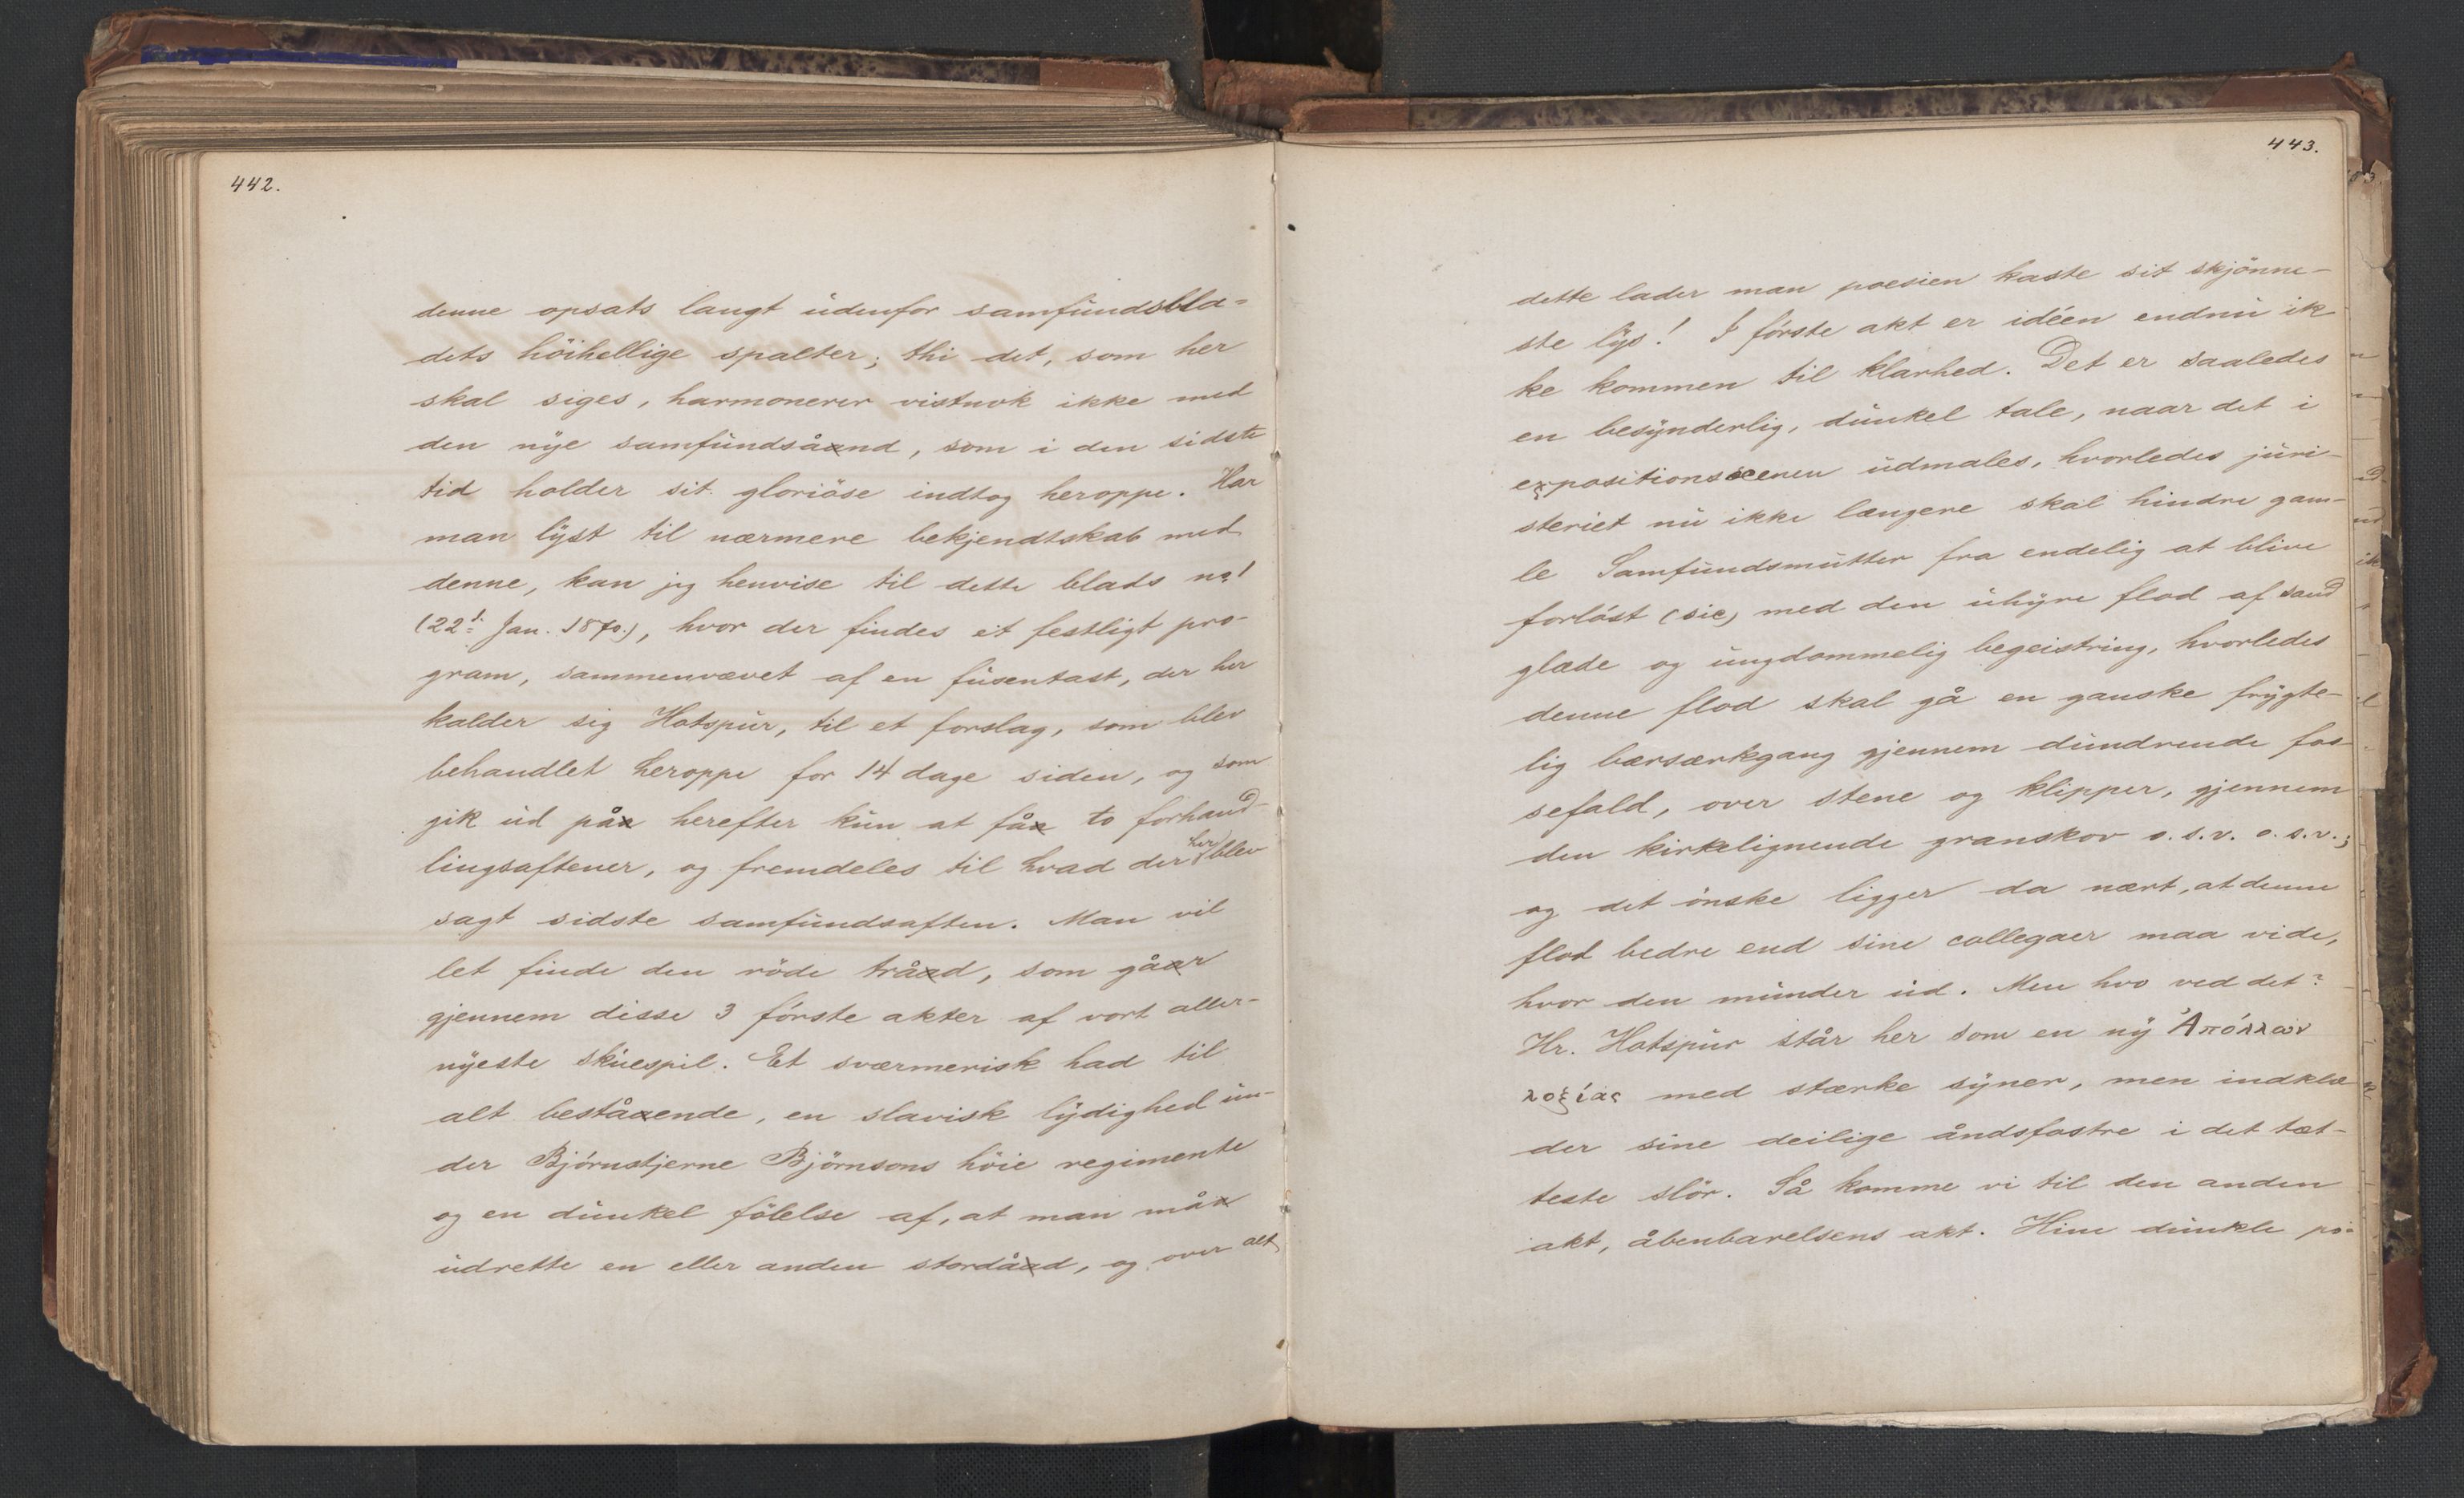 442.
denne opsats langt udenfor samfundsbla=
dets höihellige spalter; thi det, som her
skal siges, harmonerer vistnok ikke med
den nye samfundsånd, som i den sidste
tid holder sit gloriöse indtog heroppe. Har
man lyst til nærmere bekjendtskab med
denne, kan jeg henvise til dette blads no 1
(22d Jan. 1870.), hvor der findes et festligt pro-
gram, sammenvævet af en fusentast, der her
kalder sig Hotspur, til et forslag, som blev
behandlet heroppe for 14 dage siden, og som
gik ud på herefter kun at få to forhand-
lingsaftener, og fremdeles til hvad der her blev
sagt sidste samfundsaften. Man vil
let finde den röde tråd, som går
gjennem disse 3 förste akter af vort aller-
nyeste skuespil. Et sværmerisk had til
alt bestående, en slavisk lydighed un-
der Björnstjerne Björnsons höie regimente
og en dunkel fölelse af, at man må
udrette en eller anden stordåd, og over alt
443.
dette lader man poesien kaste sit skjönne-
ste lys! I förste akt er idéen endnu ik
ke kommen til klarhed. Det er saaledes
en besynderlig, dunkel tale, naar det i
expositionsscenen udmales, hvorledes juri-
steriet nu ikke længere skal hindre gam-
le Samfundsmutter fra endelig at blive
forlöst (sic) med den uhyre flod af sand
glæde og ungdommelig begeistring, hvorledes
denne flod skal gå en ganske frygte-
lig bærsærkgang gjennem dundrende fos-
sefald, over stene og klipper, gjennem
den kirkelignende granskov o.s.v. o.s.v.;
og det önske ligger da nært, at denne
flod bedre end sine collegaer maa vide,
hvor den munder ud. Men hvo ved det?
Hr. Hotspur står her som en ny Ἀπόλλων
λοξίας med stærke syner, men indklæ
der sine deilige åndsfostre i det tæt-
teste slör. Så komme vi til den anden
akt, åbenbarelsens akt. Hine dunkle po-